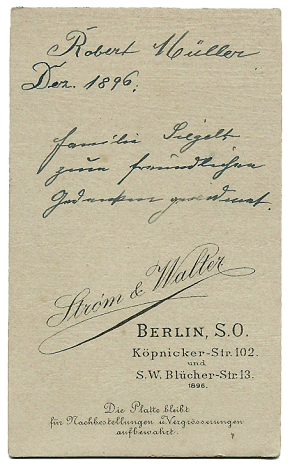 Robert Müller
Dez. 1896.
Familie Siegelt
zum freundlichen
Gedenken gewidmet.
Ström & Walter
BERLIN, S.O.
Köpnicker-Str. 102.
und
S.W. Blücher-Str. 13.
1896.
Die Platte bleibt
für Nachbestellungen u. Vergrösserungen
aufbewahrt.